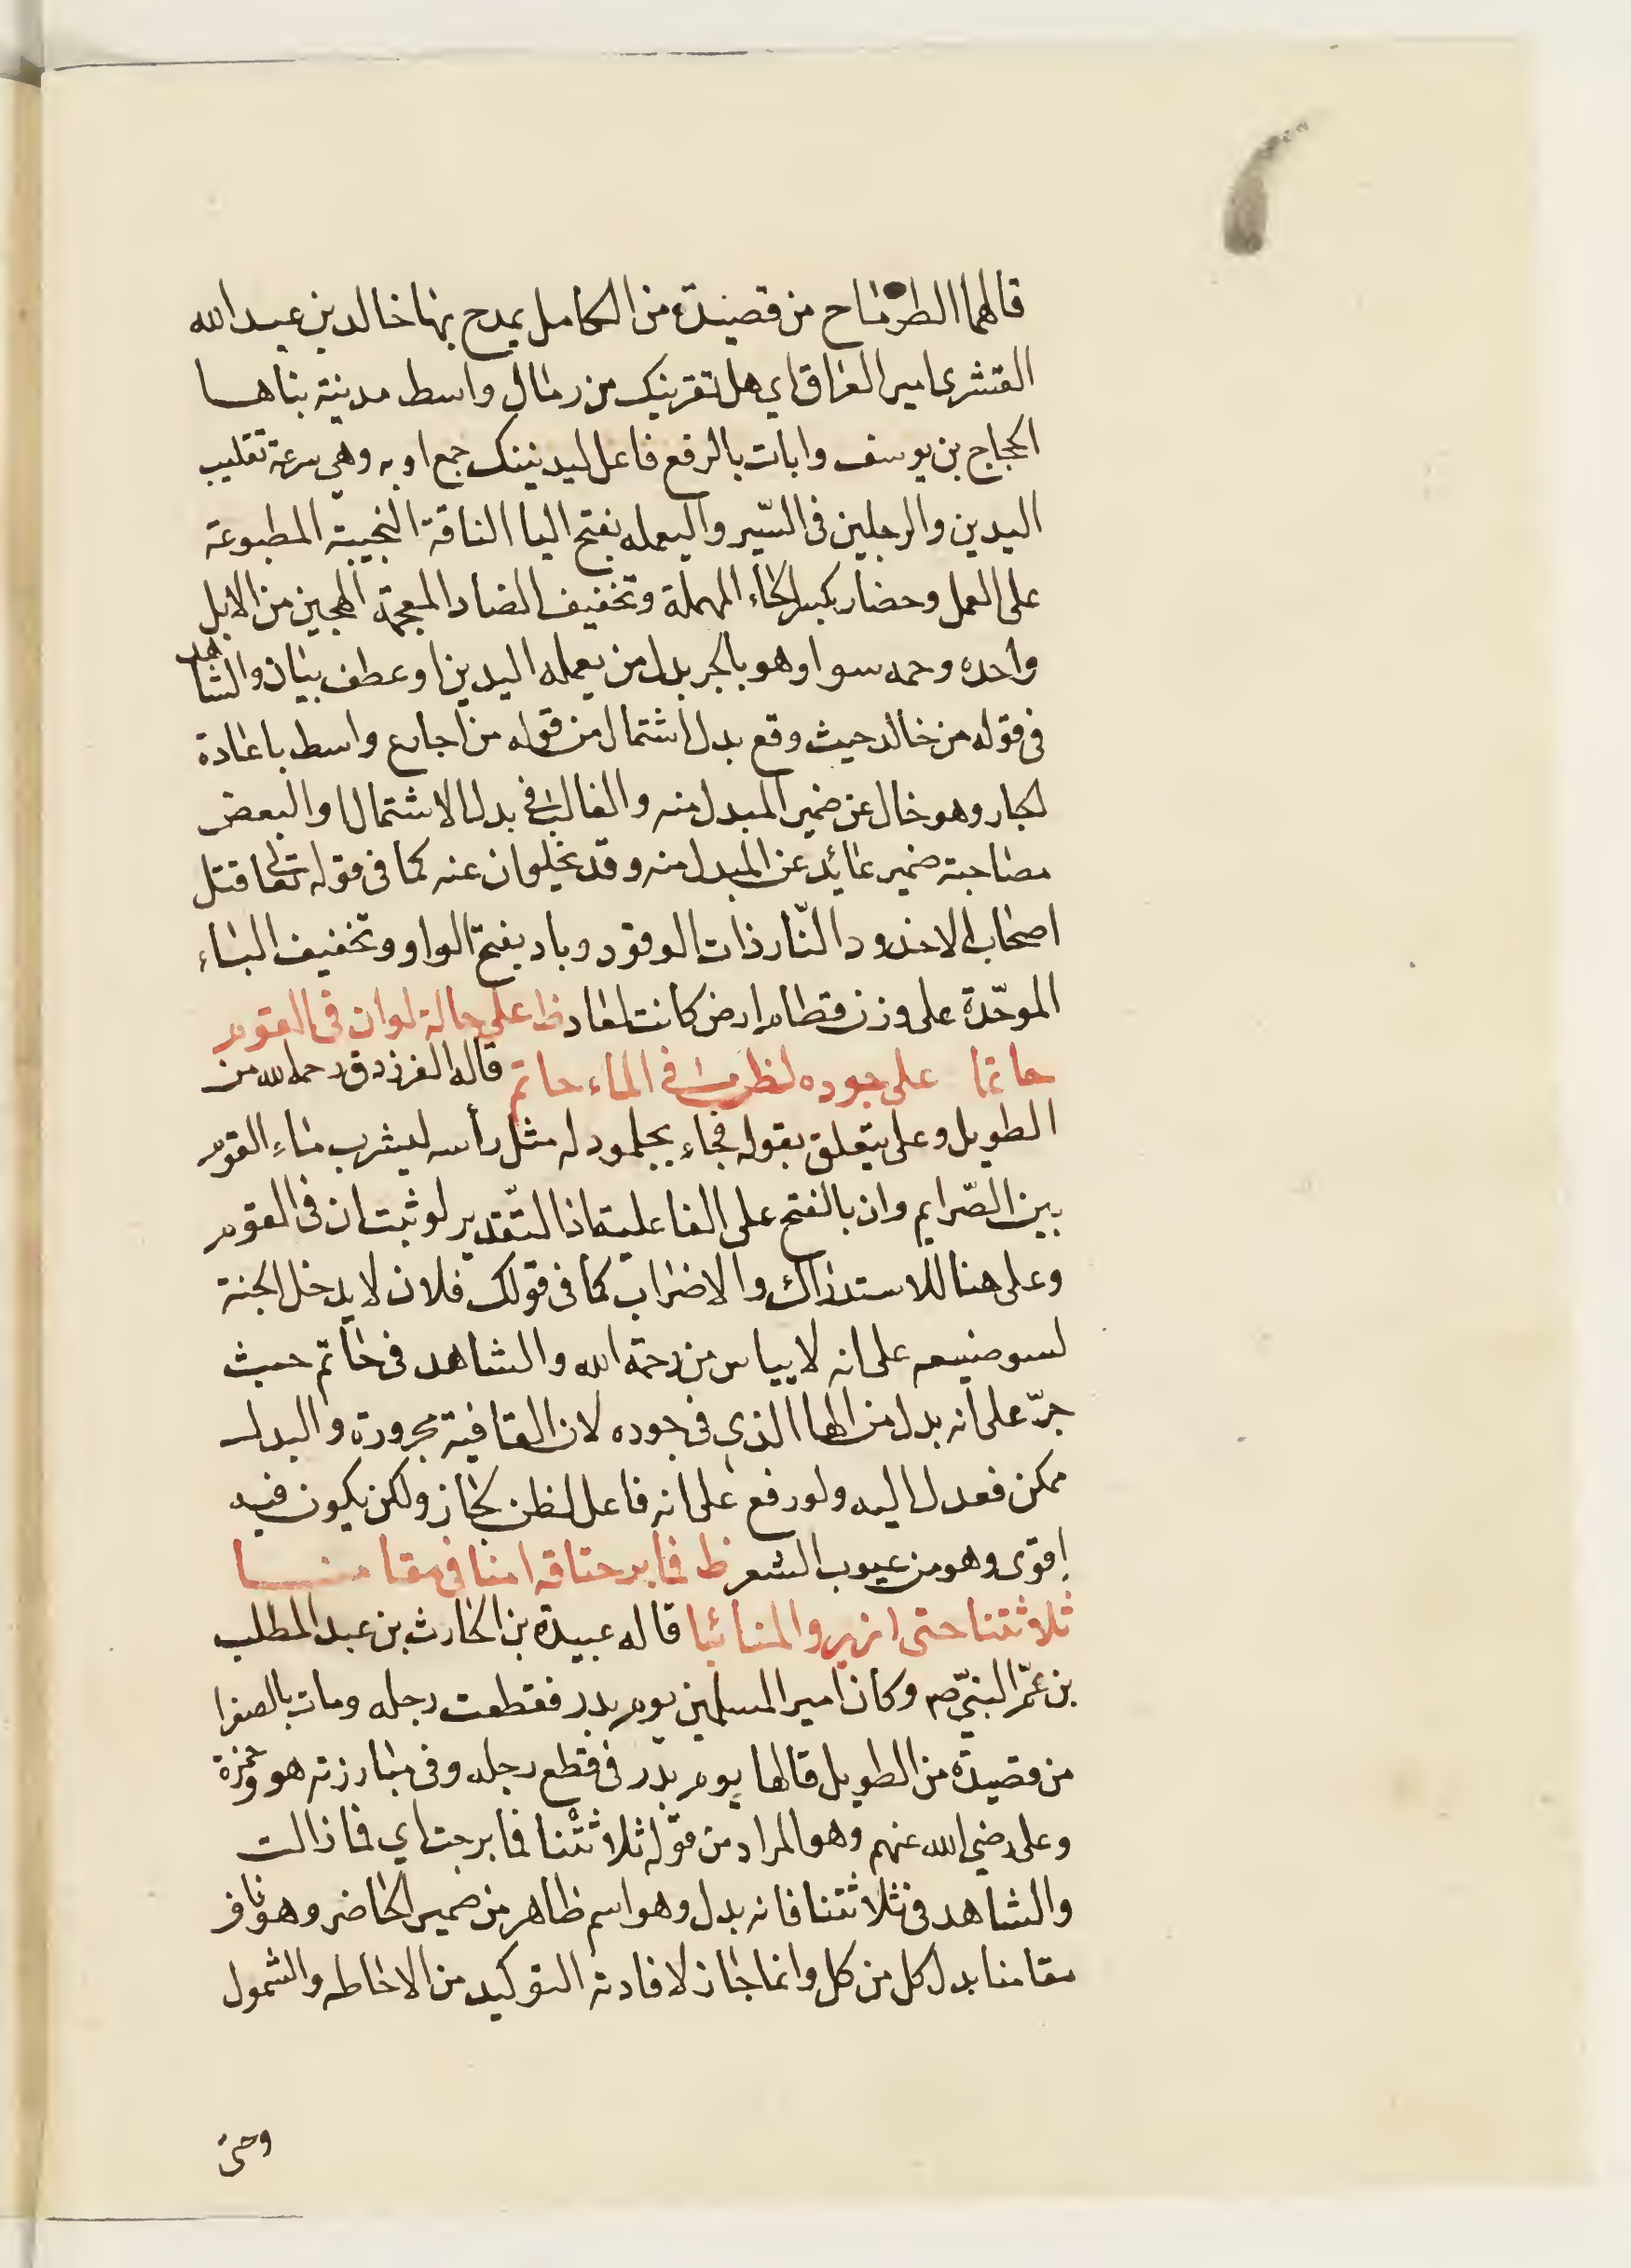 قالهما الطرماح من قصيدة من الكامل يمدح بها خالد بن عبد الله
القشري امير العراق اي هل تقربنك من رمال واسط مدينة بناهـــا
الحجاج بن يوسف وابات بالرفع فاعل ليدنينك جمع اوبه وهي سرعة تقليب
اليدين والرجلين في السّير واليعمله بفتح اليا الناقة النجيبة المطبوعة
على العمل وحضار بكسر الحاء المهملة وتخفيف الضاد المعجمة الهجين من الابل
واحده وجمعه سوا وهو بالجر بدل من يعمله اليدين او عطف بيان والشاهد
في قوله من خالد حيث وقع بدل اشتمال من قوله من اجارع واسط باعادة
لجار وهو خال عن ضمير المبدل منه والغالب في بدل الاشتمال والبعض
مصاحبة ضمير عائد عن المبدل منه وقد يخلوان عنه كما في قوله تعالى قتل
اصحاب الاخدود النّار ذات الوقود وبار بفتح الواو وتخفيف الباء
الموحّدة على وزن قطام ارض كانت لعاد ظ على حالة لوان في القوم
حاتما على جوده لظن في الماء حاتم قاله الفرزدق رحمه الله من
الطويل وعلى يتعلق بقوله فجاء بجلمود له مثل رأسه ليشرب ماء القوم
بين الصّرايم وان بالفتح على الفاعلية اذ التّقدير لو ثبت ان في القوم
وعلى هنا للاستدراك والاضراب كما في قولك فلان لا يدخل الجنة
لسو صنيعه على انه لا يياس من رحمة الله والشاهد في حاتم حيث
جرّ على انه بدل من الها الذي في جوده لان القافية مجرورة والبدل
ممكن فعدل اليه ولو رفع على انه فاعل لظن لجاز ولكن يكون فيه
اقوى وهو من عيوب الشعر ظ فما برحت اقدامنا في مقامنـــا
ثلاثتنا حتى ازيروا المنائيا قاله عبيدة بن الحارث بن عبد المطلب
بن عمّ النبيّ صم وكان امير المسلمين يوم بدر فقطعت رجله ومات بالصفرا
من قصيدة من الطويل قالها يوم بدر في قطع رجله وفي مبارزته هو وحمزة
وعلى رضي الله عنهم وهو المراد من قوله ثلاثتنا فما برحت اي فما زالت
والشاهد في ثلاثتنا فانه بدل وهو اسم ظاهر من ضمير الحاضر وهو نا في
مقامنا بدل كل من كل وانما جاز لافادته التوكيد من الاحاطه والشمول
وحن